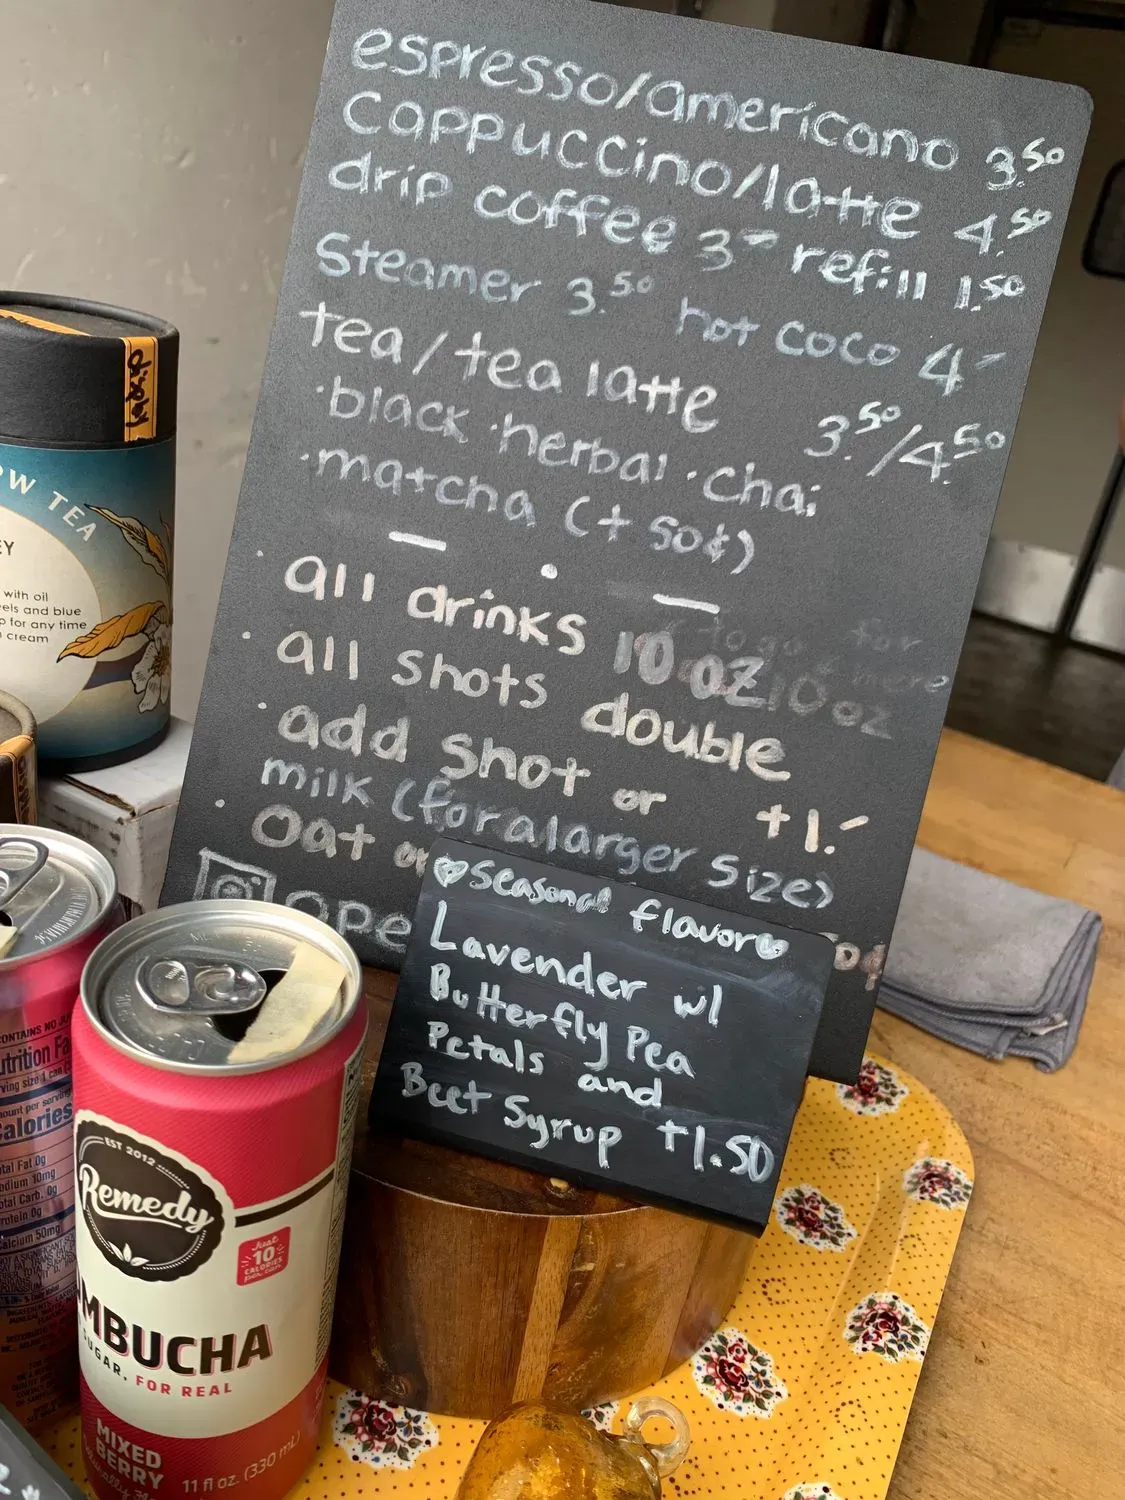 espresso/americano 3.50
cappuccino/latte 4.50
drip coffee 3- refill 1.50
Steamer 3.50 hot coco 4-
tea/tea latte 3.50/4.50
·black ·herbal ·chai
·matcha (+ 50¢)
· all drinks 10 oz
to go for
more
10 oz
· all shots double
· add shot or +1.-
milk (for a larger size)
· Oat or
ope
♥ seasonal flavor ♥
Lavender w/
Butterfly Pea
Petals and
Beet Syrup +1.50
digby
OW TEA
EY
with oil
els and blue
p for any time
cream
EST 2012
Remedy
Just
10
CALORIES
per can
MBUCHA
UGAR, FOR REAL
MIXED
BERRY
11 fl oz. (330 mL)
CONTAINS NO JU
utrition Fa
ving size 1 can
mount per serving
Calories
tal Fat 0g
odium 10mg
tal Carb. 0g
rotein 0g
alcium 50mg